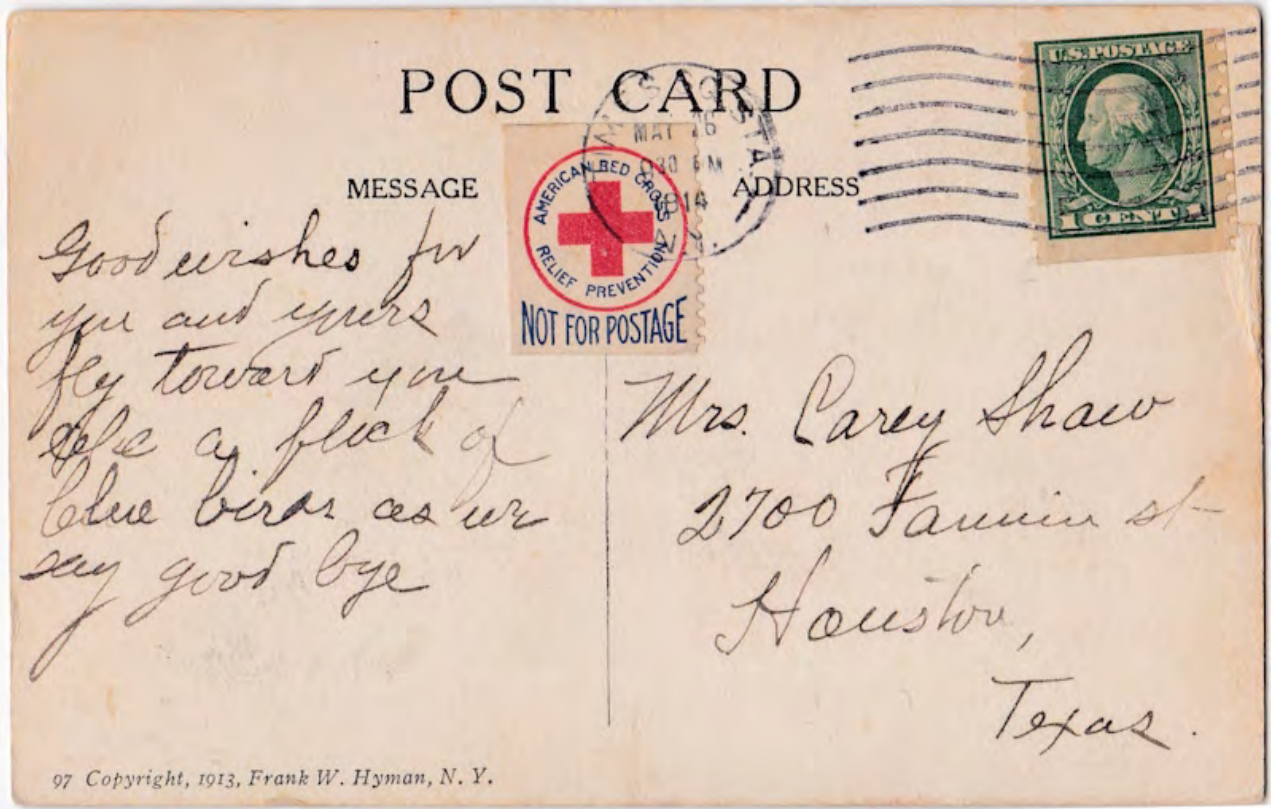 POST CARD
MESSAGE
ADDRESS
MAY 26
930 PM
1914
N.Y.
STA.
U.S. POSTAGE
1 CENT 1
AMERICAN RED CROSS
RELIEF PREVENTION
NOT FOR POSTAGE
Good wishes for
you and yours
fly toward you
like a flock of
blue birds as we
say good bye
Mrs. Carey Shaw
2700 Fannin st
Houston,
Texas.
97 Copyright, 1913, Frank W. Hyman, N. Y.